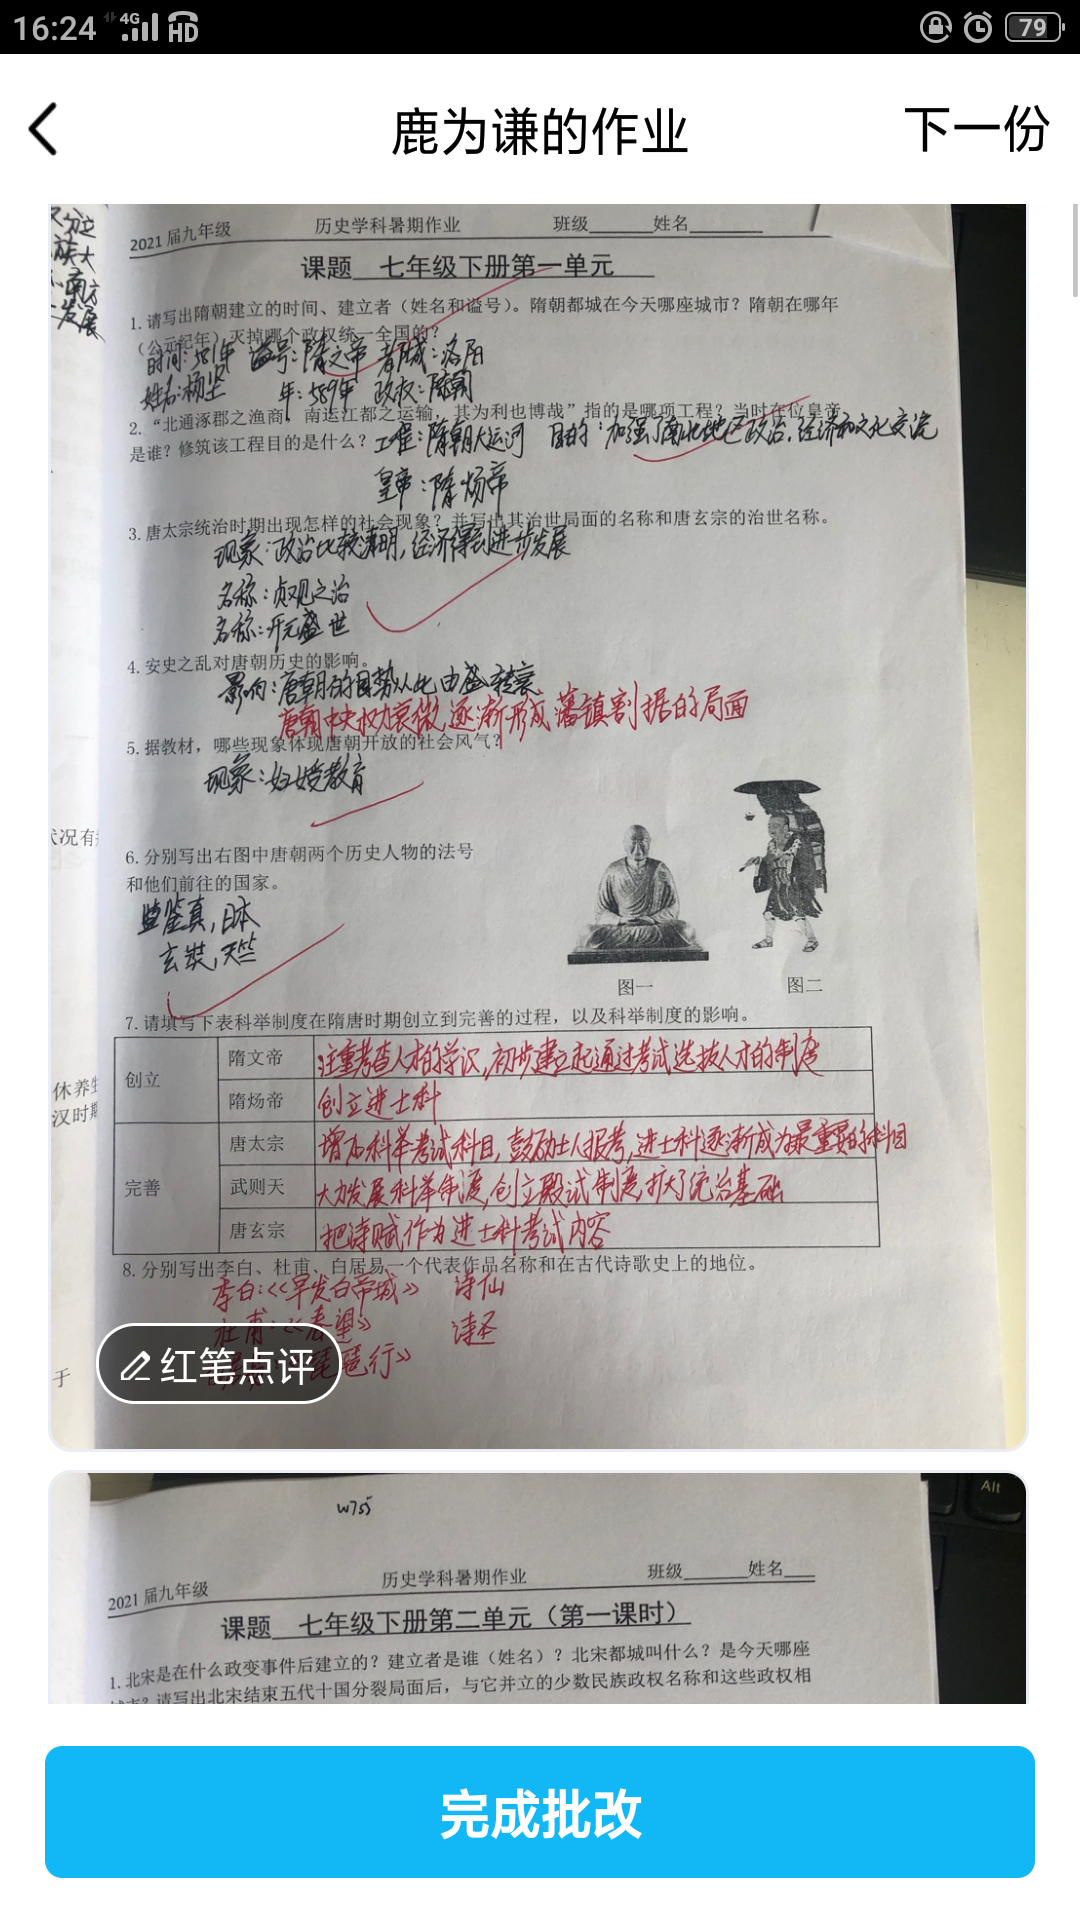 16:24 4G HD 79
鹿为谦的作业
下一份
2021届九年级 历史学科暑期作业 班级 姓名
课题 七年级下册第一单元
1.请写出隋朝建立的时间、建立者（姓名和谥号）。隋朝都城在今天哪座城市？隋朝在哪年
（公元纪年）灭掉哪个政权统一全国的？
时间:581年 谥号:隋文帝 都城:洛阳
姓名:杨坚 年:589年 政权:陈朝
2.“北通涿郡之渔商，南运江都之运输，其为利也博哉”指的是哪项工程？当时在位皇帝
是谁？修筑该工程目的是什么？工程:隋朝大运河 目的:加强了南北地区政治,经济和文化交流
皇帝:隋炀帝
3.唐太宗统治时期出现怎样的社会现象？并写出其治世局面的名称和唐玄宗的治世名称。
现象:政治比较清明,经济得到进步发展
名称:贞观之治
名称:开元盛世
4.安史之乱对唐朝历史的影响。
影响:唐朝的国势从此由盛转衰
唐朝中央权力衰微,逐渐形成藩镇割据的局面
5.据教材，哪些现象体现唐朝开放的社会风气？
现象:妇女受教育
6.分别写出右图中唐朝两个历史人物的法号
和他们前往的国家。
鉴真,日本
玄奘,天竺
图一 图二
7.请填写下表科举制度在隋唐时期创立到完善的过程，以及科举制度的影响。
创立 隋文帝 注重考查人才的学识,初步建立起通过考试选拔人才的制度
隋炀帝 创立进士科
完善 唐太宗 增加科举考试科目,鼓励士人报考,进士科逐渐成为最重要的科目
武则天 大力发展科举制度,创立殿试制度,扩大了统治基础
唐玄宗 把诗赋作为进士科考试内容
8.分别写出李白、杜甫、白居易一个代表作品名称和在古代诗歌史上的地位。
李白:《早发白帝城》 诗仙
杜甫:《春望》 诗圣
琵琶行》
红笔点评
休养生
汉时期
于
Alt
2021届九年级 历史学科暑期作业 班级 姓名
课题 七年级下册第二单元（第一课时）
1.北宋是在什么政变事件后建立的？建立者是谁（姓名）？北宋都城叫什么？是今天哪座
城市？请写出北宋结束五代十国分裂局面后，与它并立的少数民族政权名称和这些政权相
完成批改